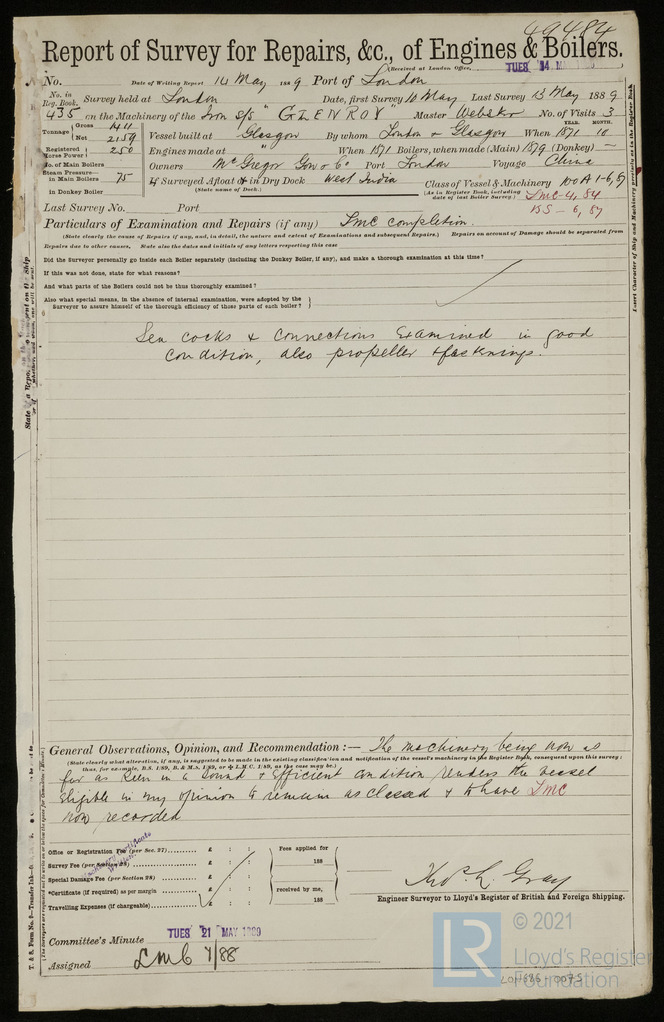 49484
Report of Survey for Repairs, &c., of Engines & Boilers.
(Received at London Office, TUES 14 MAY
No. Date of Writing Report 14 May 1889 Port of London
No. in Reg. Book. Survey held at London Date, first Survey 10 May Last Survey 13 May 1889
435 on the Machinery of the Iron s/s "GLENROY" Master Webster No. of Visits 3
Tonnage Gross
Net 2159
Vessel built at Glasgow By whom London & Glasgow When YEAR. 1871 MONTH. 10
Registered Horse Power 250
Engines made at " When 1871 Boilers, when made (Main) 1879 (Donkey) —
No. of Main Boilers
Owners McGregor Gow & Co Port London Voyage China
Steam Pressure— in Main Boiler 75
in Donkey Boiler
If Surveyed Afloat or in Dry Dock West India
(State name of Dock.)
Class of Vessel & Machinery 100A1-6,87
(As in Register Book, including date of last Boiler Survey.) LMC-4,84
BS-6,87
Last Survey No. Port
Particulars of Examination and Repairs (if any) LMC completion.
(State clearly the cause of Repairs if any, and, in detail, the nature and extent of Examinations and subsequent Repairs.) Repairs on account of Damage should be separated from
Repairs due to other causes. State also the dates and initials of any letters respecting this case
Did the Surveyor personally go inside each Boiler separately (including the Donkey Boiler, if any), and make a thorough examination at this time?
If this was not done, state for what reasons?
And what parts of the Boilers could not be thus thoroughly examined?
Also what special means, in the absence of internal examination, were adopted by the
Surveyor to assure himself of the thorough efficiency of those parts of each boiler?
Sea cocks & connections examined in good
condition, also propeller & fastenings.
General Observations, Opinion, and Recommendation:— The machinery being now as
(State clearly what alteration, if any, is suggested to be made in the existing classification and notification of the vessel's machinery in the Register Book, consequent upon this survey:
thus, for example, B.S. 1/89, B. & M.S. 1/89, or L.M.C. 1/89, as the case may be.)
far as seen in a sound & efficient condition renders the vessel
eligible in my opinion to remain as classed & to have LMC
now recorded
Office or Registration Fee (per Sec. 27) £ : :
Survey Fee (per Section 28) £ : :
Special Damage Fee (per Section 28) £ : :
*Certificate (if required) as per margin £ : :
Travelling Expenses (if chargeable) £ : :
Fees applied for
188
received by me,
188
Engineer Surveyor to Lloyd's Register of British and Foreign Shipping.
Committee's Minute TUES 21 MAY
Assigned
© 2021
LR
Lloyd's Register
Foundation
LON686-0075